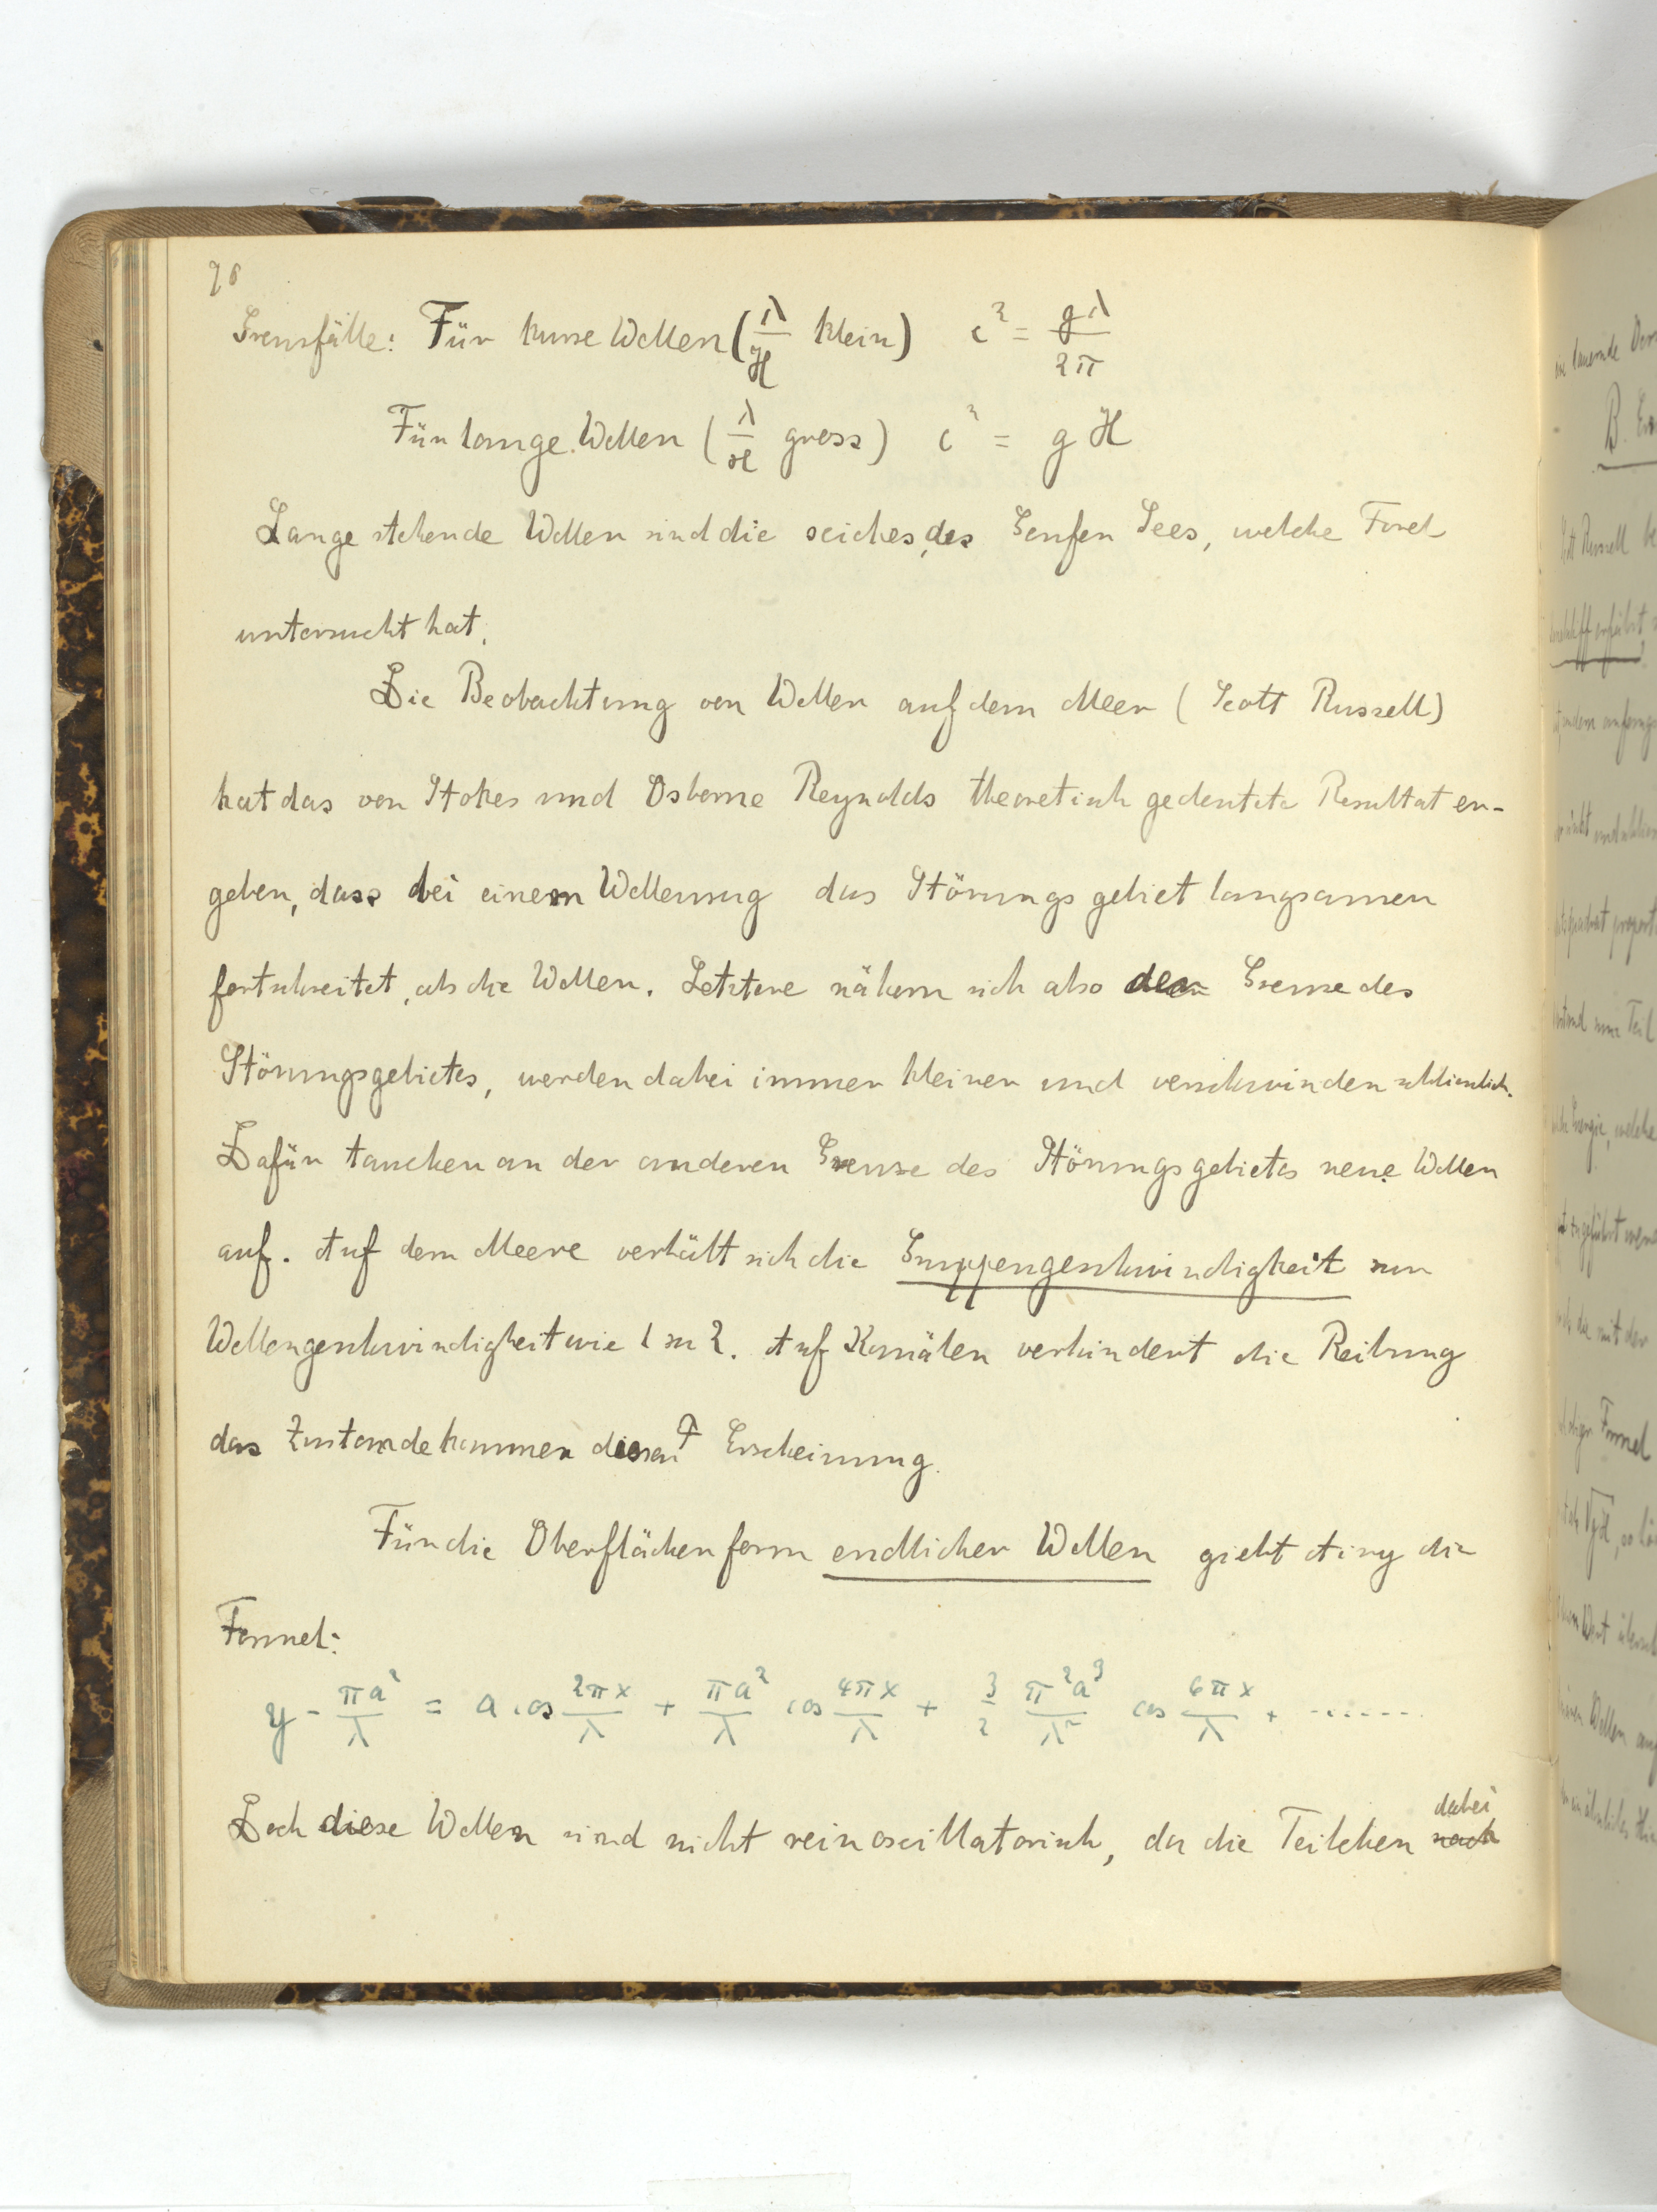 76
Grenzfälle: Für kurze Wellen (λ/H klein) c² = gλ/2π
Für lange Wellen (λ/H gross) c² = gH
Lange stehende Wellen sind die seiches des Genfer Sees, welche Forel
untersucht hat.
Die Beobachtung von Wellen auf dem Meer (Scott Russell)
hat das von Stokes und Osborne Reynolds theoretisch gedeutete Resultat er-
geben, dass bei einem Wellenzug das Störungsgebiet langsamer
fortschreitet, als die Wellen. Letztere nähern sich also der Grenze des
Störungsgebietes, werden dabei immer kleiner und verschwinden schliesslich.
Dafür tauchen an der anderen Grenze des Störungsgebietes neue Wellen
auf. Auf dem Meere verhält sich die Gruppengeschwindigkeit zur
Wellengeschwindigkeit wie 1 zu 2. Auf Kanälen verhindert die Reibung
das Zustandekommen dieser Erscheinung.
Für die Oberflächenform endlicher Wellen giebt Airy die
Formel:
y - πa²/λ = a cos 2πx/λ + πa²/λ cos 4πx/λ + 3/2 π²a³/λ² cos 6πx/λ + .......
dabei
Doch diese Wellen sind nicht rein oscillatorisch, da die Teilchen nach